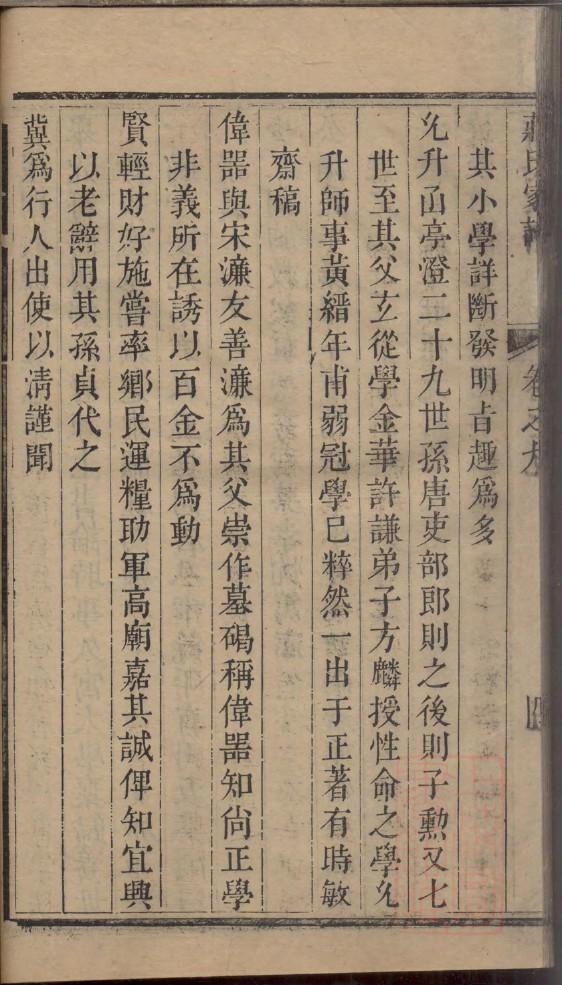 蔣氏家譜 卷之九 四
其小學詳斷發明旨趣爲多
允升函亭澄二十九世孫唐吏部郎則之後則子勲又七
世至其父玄從學金華許謙弟子方麟授性命之學允
升師事黃縉年甫弱冠學已粹然一出于正著有時敏
齋稿
偉器與宋濂友善濂爲其父崇作墓碣稱偉器知尙正學
非義所在誘以百金不爲動
賢輕財好施嘗率鄉民運糧助軍高廟嘉其誠俾知宜興
以老辭用其孫貞代之
冀爲行人出使以清謹聞